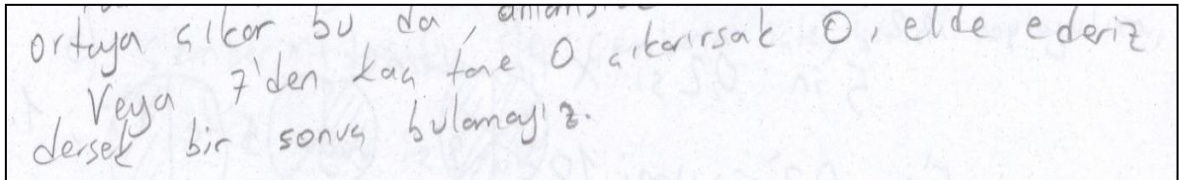 ortaya çıkar bu da,
Veya 7'den kaç tane 0 çıkarırsak 0, elde ederiz
dersek bir sonuç bulamayız.